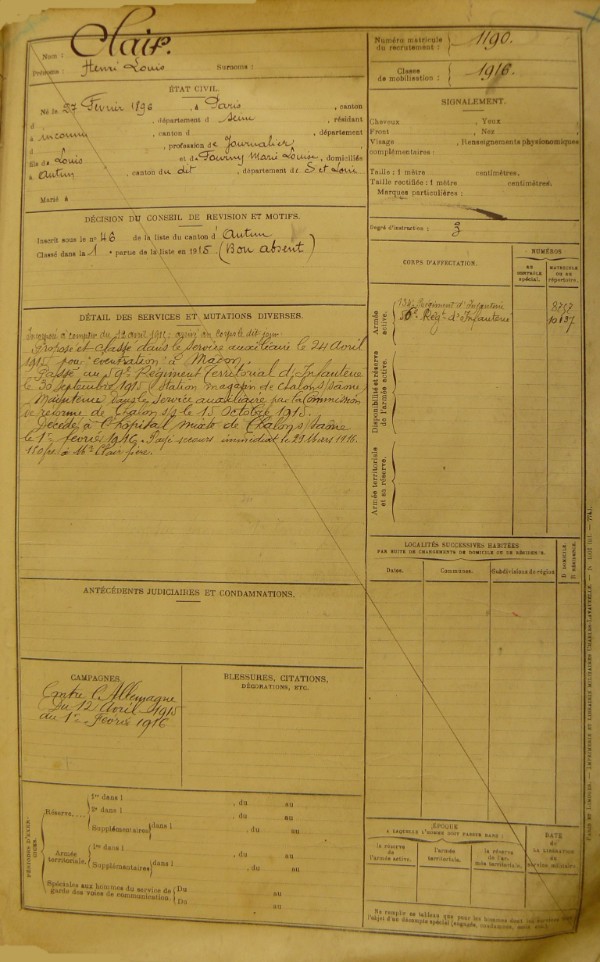 Nom : Clair.
Prénoms : Henri Louis Surnoms :
ÉTAT CIVIL.
Né le 27 Février 1896, à Paris, canton
d , département d Seine, résidant
à inconnu, canton d , département
d , profession de Journalier,
fils de Louis et de Fourny Marie Louise, domiciliés
à Autun, canton du dit, département de S et Loire
Marié à
DÉCISION DU CONSEIL DE REVISION ET MOTIFS.
Inscrit sous le n° 46 de la liste du canton d'Autun
Classé dans la 1 partie de la liste en 1915 (Bon absent)
DÉTAIL DES SERVICES ET MUTATIONS DIVERSES.
Incorporé à compter du 12 avril 1915, arrivé au corps le dit jour
Proposé et classé dans le service auxiliaire le 24 Avril
1915 pour "éventration" à Macon.
Passé au 59e Régiment Territorial d'Infanterie
le 30 Septembre 1915 Station magasin de Chalons/Saône
Maintenu dans le service auxiliaire par la Commission
de réforme de Chalon s/s le 15 Octobre 1915.
Décédé à l'hôpital mixte de Chalon s/Saône
le 1er février 1916. Payé secours immédiat le 29 Mars 1916.
150f à Mr Clair père.
ANTÉCÉDENTS JUDICIAIRES ET CONDAMNATIONS.
CAMPAGNES.
Contre l'Allemagne
Du 12 Avril 1915
au 1er Février 1916
BLESSURES, CITATIONS,
DÉCORATIONS, ETC.
PÉRIODES D'EXERCICES
Réserve....
1re dans l , du au
2e dans l , du au
Supplémentaires dans l , du au
Armée territoriale.
1re dans l , du au
Supplémentaires dans l , du au
Spéciales aux hommes du service de garde des voies de communication.
Du au
Du au
Numéro matricule du recrutement : 1190.
Classe de mobilisation : 1916.
SIGNALEMENT.
Cheveux , Yeux
Front , Nez
Visage , Renseignements physionomiques
complémentaires :
Taille : 1 mètre centimètres.
Taille rectifiée : 1 mètre centimètres.
Marques particulières :
Degré d'instruction : 3
CORPS D'AFFECTATION.
NUMÉROS
AU CONTRÔLE spécial.
MATRICULE OU AU répertoire.
Armée active.
134e Régiment d'Infanterie
56e Régt d'Infanterie
Disponibilité et réserve de l'armée active.
Armée territoriale et sa réserve.
LOCALITÉS SUCCESSIVES HABITÉES
PAR SUITE DE CHANGEMENTS DE DOMICILE OU DE RÉSIDENCE.
Dates.
Communes.
Subdivisions de région
D DOMICILE.
R RÉSIDENCE.
ÉPOQUE
A LAQUELLE L'HOMME DOIT PASSER DANS :
la réserve de l'armée active.
l'armée territoriale.
la réserve de l'armée territoriale.
DATE de LA LIBÉRATION du service militaire.